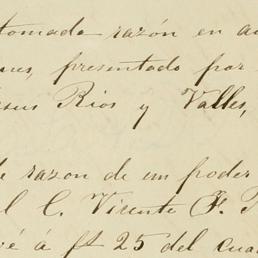 tomada razón en
presentado por
Rios y Valles,
razon de un poder
C. Vicente F.
á f† 25 del